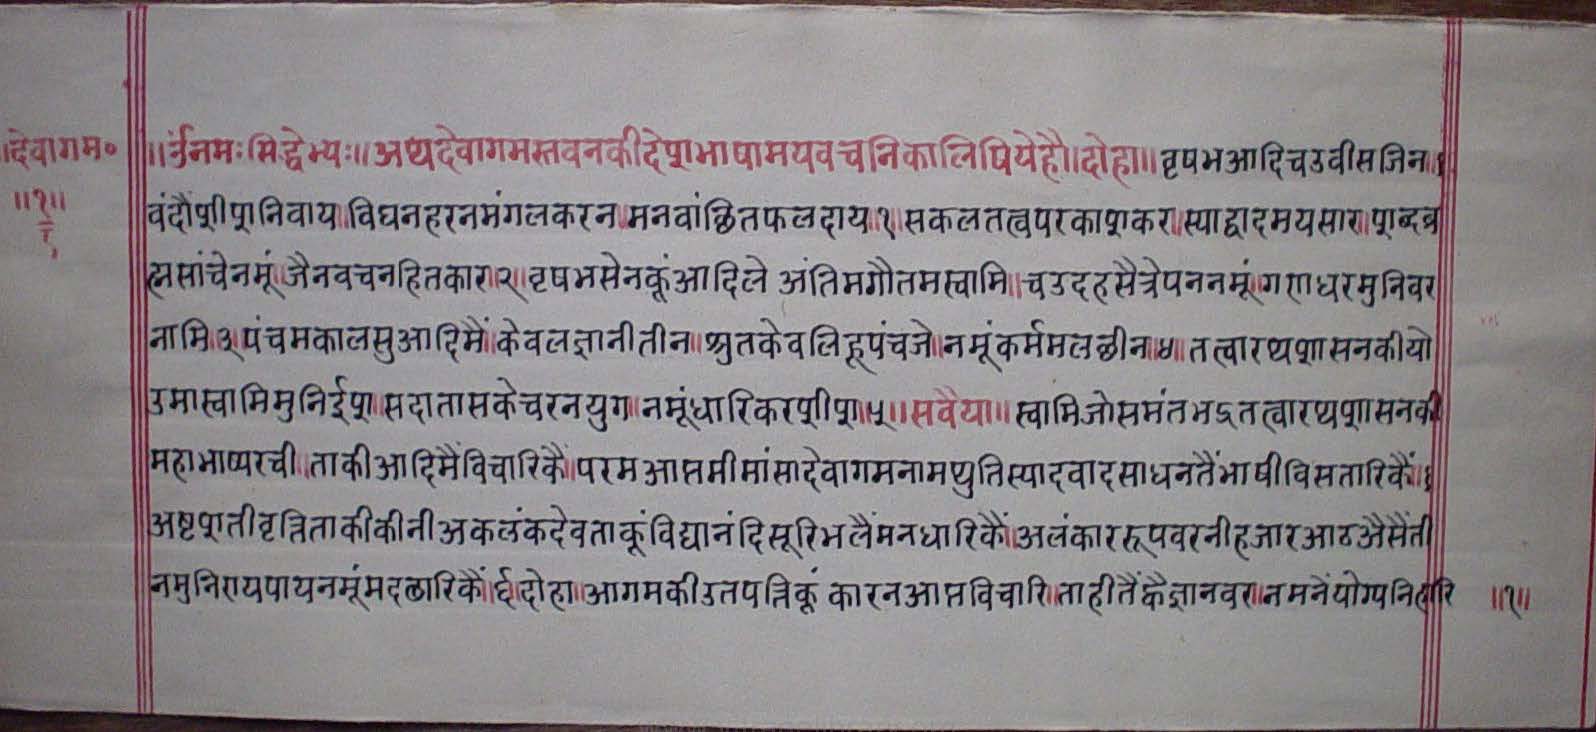 ।देवागम॰
॥१॥
॥ॐनमः सिद्धेभ्यः॥अथदेवागमस्तवनकीदेशभाषामयवचनिकालिषियेहै॥दोहा॥वृषभआदिचउवीसजिन॥
वंदौंशीशनिवाय॥विघनहरनमंगलकरन॥मनवांछितफलदाय॥१॥सकलतत्वपरकाशकर॥स्याद्वादमयसार॥शब्दब्र
ह्मसांचेनमूं॥जैनवचनहितकार॥२॥वृषभसेनकूंआदिले अंतिमगौतमस्वामि॥चउदहसैत्रेपननमूं॥गणधरमुनिवर
नामि॥३॥पंचमकालसुआदिमैं॥केवलज्ञानीतीन॥श्रुतकेवलिहूपंचजे॥नमूंकर्ममलछीन॥४॥तत्वारथशासनकीयो
उमास्वामिमुनिईश॥सदातासकेचरनयुग॥नमूंधारिकरशीश॥५॥सवैया॥स्वामिजोसमंतभद्रतत्वारथशासनकी
महाभाष्यरची॥ताकीआदिमैंविचारिकैं॥परमआप्तमीमांसादेवागमनामथुतिस्यादवादसाधनतैंभाषीविसतारिकैं॥
अष्टशतीवृत्तिताकीकीनीअकलंकदेवताकूंविद्यानंदिसूरिभलैंमनधारिकैं॥अलंकाररूपवरनीहजारआठअैसैंती
नमुनिरायपायनमूंमदछारिकैं॥६॥दोहा॥आगमकीउतपत्तिकूं कारनआप्तविचारि॥ताहीतैंह्वैज्ञानवर॥नमनेंयोग्यनिहारि
॥१॥